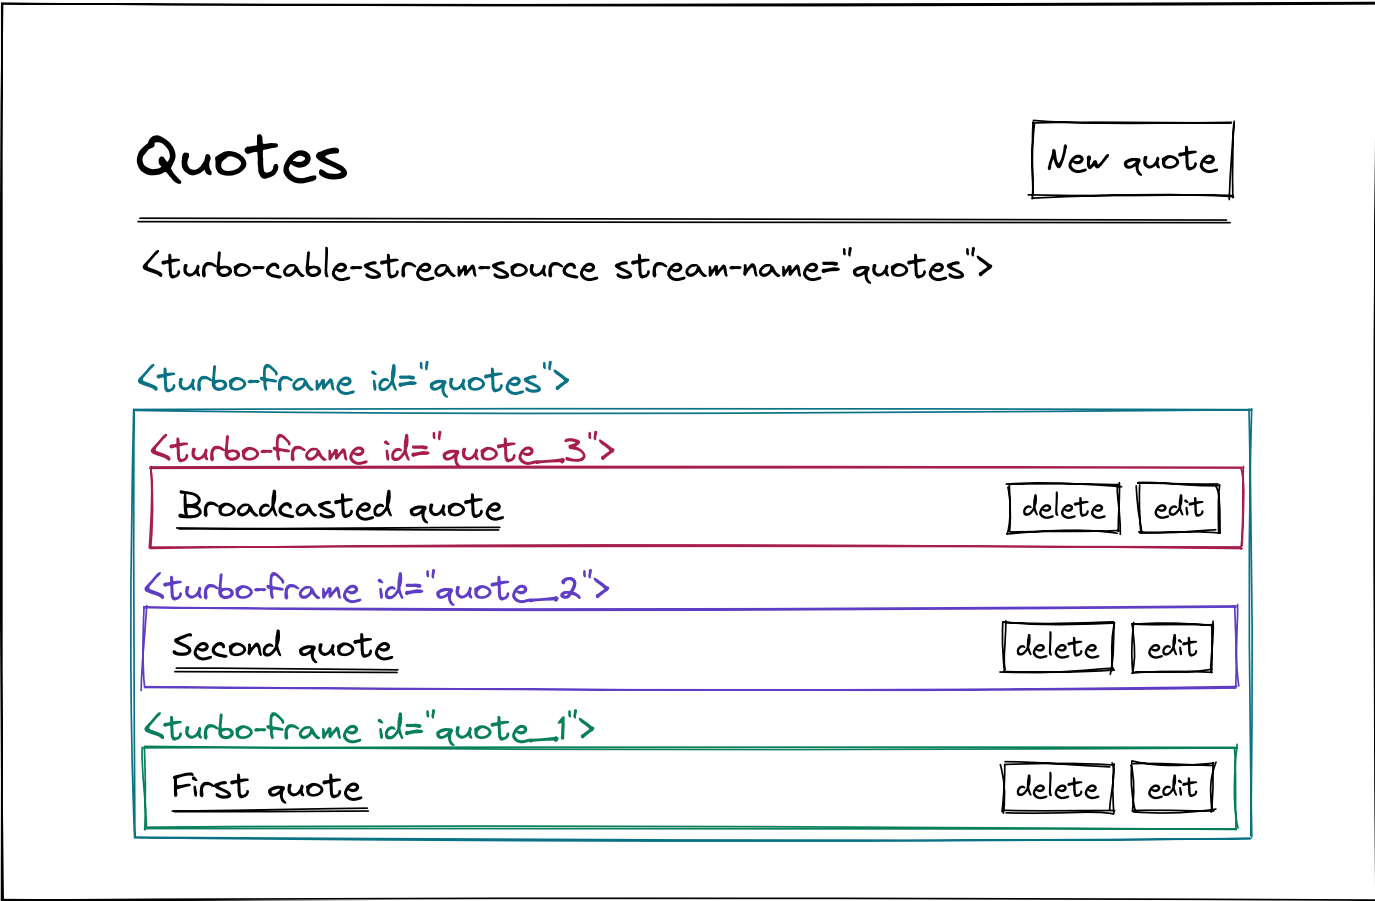 Quotes
New quote
<turbo-cable-stream-source stream-name="quotes">
<turbo-frame id="quotes">
<turbo-frame id="quote_3">
Broadcasted quote delete edit
<turbo-frame id="quote_2">
Second quote delete edit
<turbo-frame id="quote_1">
First quote delete edit